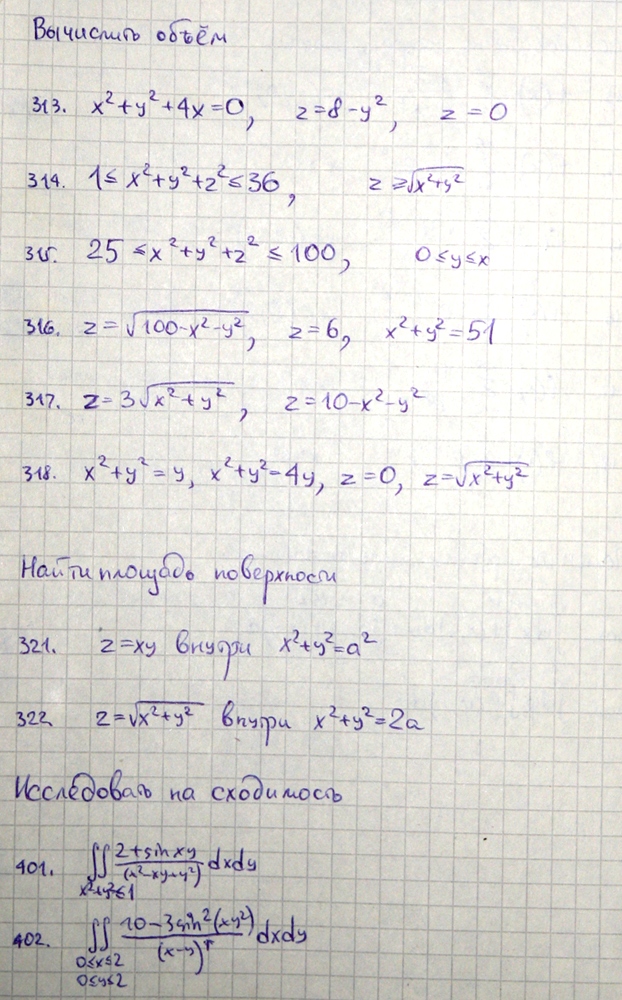 Вычислить объём
313. x²+y²+4x=0, z=8-y², z=0
314. 1≤x²+y²+z²≤36, z≥√(x²+y²)
315. 25≤x²+y²+z²≤100, 0≤y≤x
316. z=√(100-x²-y²), z=6, x²+y²=51
317. z=3√(x²+y²), z=10-x²-y²
318. x²+y²=y, x²+y²=4y, z=0, z=√(x²+y²)
Найти площадь поверхности
321. z=xy внутри x²+y²=a²
322 z=√(x²+y²) внутри x²+y²=2a
Исследовать на сходимость
401. ∬ (2+sin xy)/(x²-xy+y²) dxdy
x²+y²≤1
402. ∬ (10-3sin²(xy²))/(x-y) dxdy
0≤x≤2
0≤y≤2